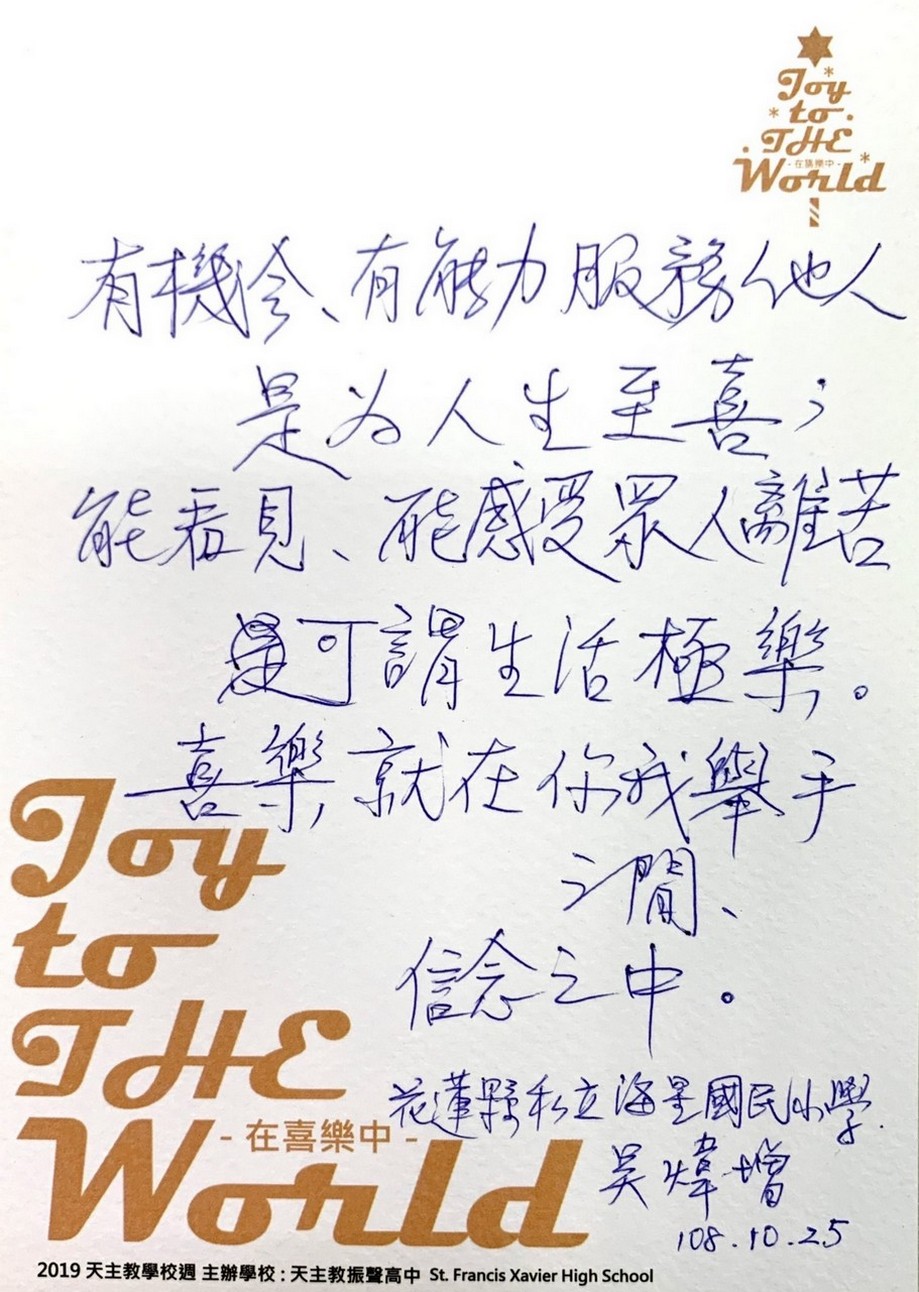 Joy
to
THE
-在喜樂中-
World
有機会、有能力服務他人
是为人生至喜；
能看見、能感受眾人離苦
是可謂生活極樂。
喜樂就在你我舉手
之間、
信念之中。
花蓮縣私立海星國民小學
吳煒增
108.10.25
Joy
to
THE
- 在喜樂中 -
World
2019 天主教學校週 主辦學校：天主教振聲高中 St. Francis Xavier High School